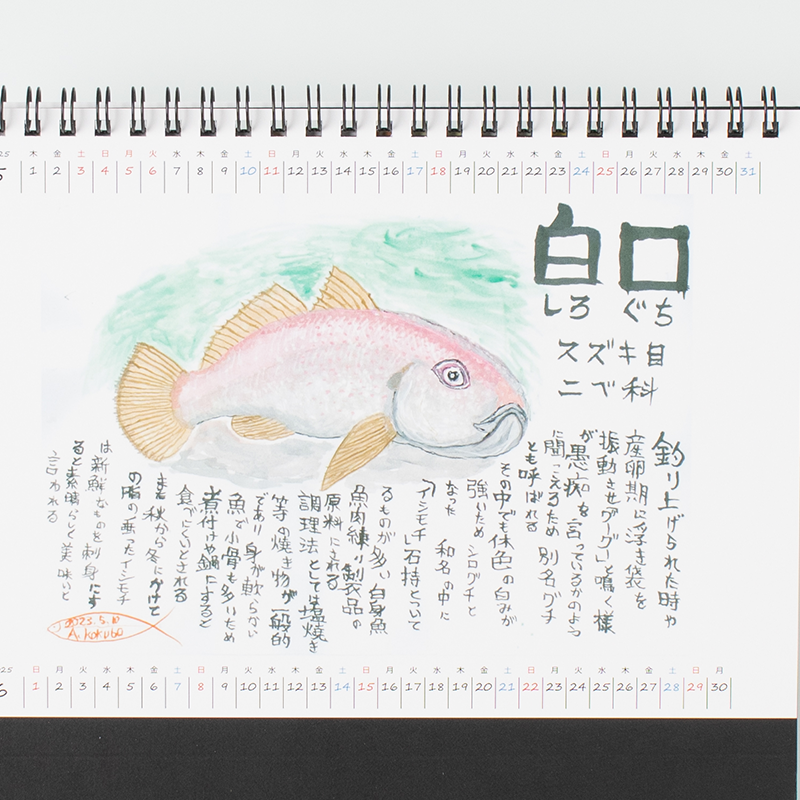 25 木 金 土 日 月 火 水 木 金 土 日 月 火 水 木 金 土 日 月 火 水 木 金 土 日 月 火 水 木 金 土
5 1 2 3 4 5 6 7 8 9 10 11 12 13 14 15 16 17 18 19 20 21 22 23 24 25 26 27 28 29 30 31
白口
しろ ぐち
スズキ目
ニベ科
釣り上げられた時や
産卵期に浮き袋を
振動させ「グーグー」と鳴く様
が愚痴を言っているかのよう
に聞こえるため別名グチ
とも呼ばれる
その中でも体色の白みが
強いため シログチと
なった 和名の中に
「イシモチ」石持とついて
るものが多い 白身魚
魚肉練り製品の
原料にされる
調理法としては塩焼き
等の焼き物が一般的
であり 身が軟らかい
魚で小骨も多いため
煮付けや鍋にすると
食べにくいとされる
また 秋から冬にかけて
の脂の乗ったイシモチ
は新鮮なものを刺身にす
ると素晴らしく美味いと
言われる
2023.5.10
A.kokubo
25 日 月 火 水 木 金 土 日 月 火 水 木 金 土 日 月 火 水 木 金 土 日 月 火 水 木 金 土 日 月
6 1 2 3 4 5 6 7 8 9 10 11 12 13 14 15 16 17 18 19 20 21 22 23 24 25 26 27 28 29 30